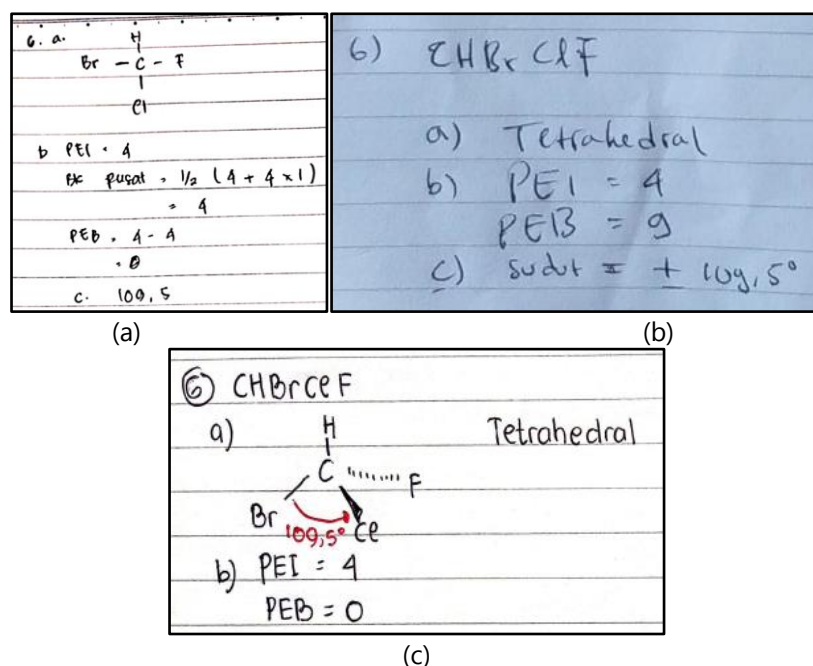 6. a.
H
Br - C - F
Cl
b PEI = 4
pusat = 1/2 (4 + 4 x 1)
= 4
PEB = 4 - 4
= 0
c. 109,5
(a)
6) CHBrClF
a) Tetrahedral
b) PEI = 4
PEB = 9
c) sudut = ± 109,5°
(b)
6 CHBrClF
a) H Tetrahedral
C F
Br Cl
109,5°
b) PEI = 4
PEB = 0
(c)